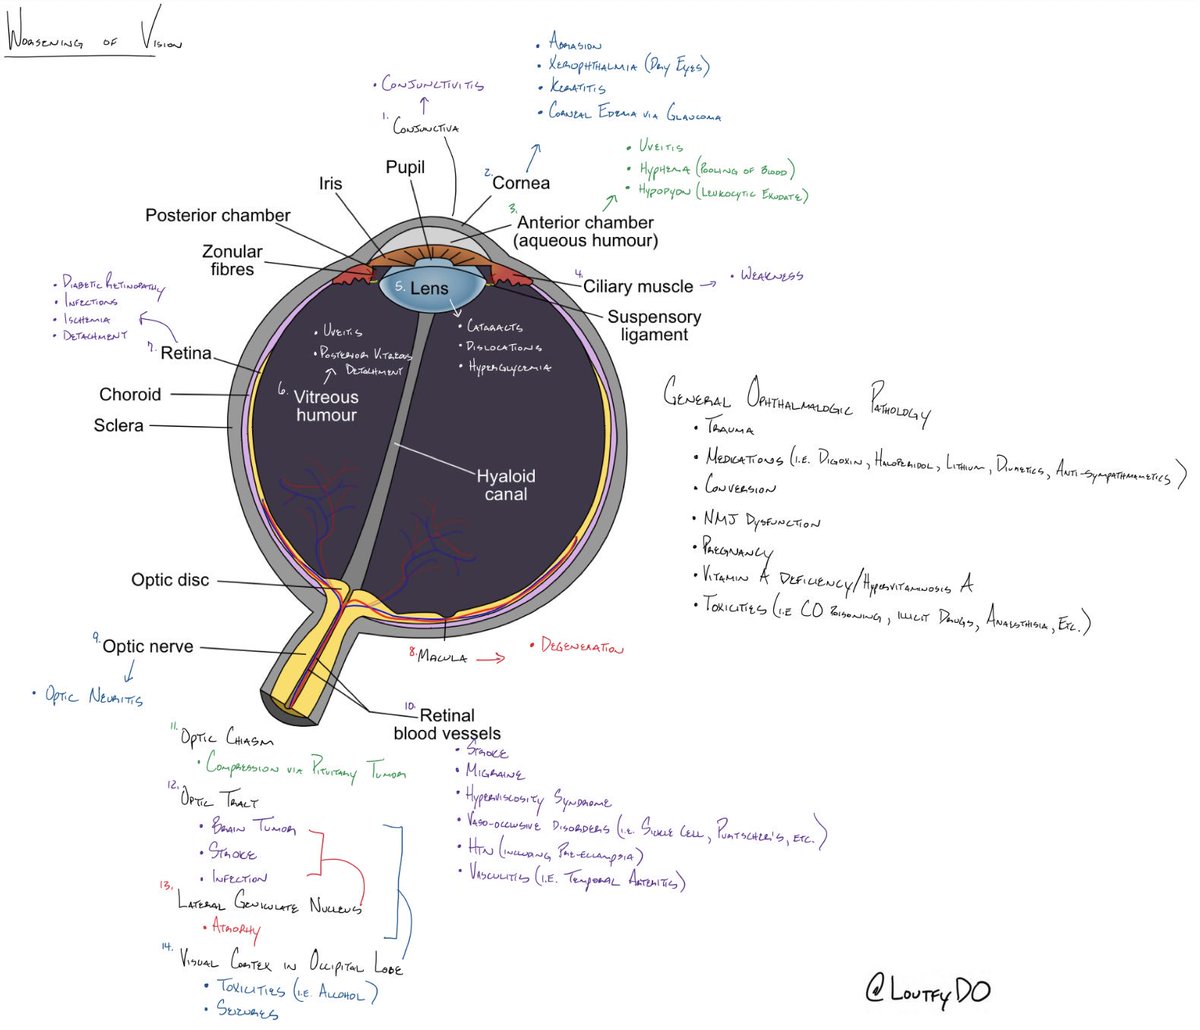 Worsening of Vision
• Abrasion
• Xerophthalmia (Dry Eyes)
• Keratitis
• Corneal Edema via Glaucoma
• Conjunctivitis
1. Conjunctiva
• Uveitis
• Hyphema (Pooling of Blood)
• Hypopyon (Leukocytic Exudate)
Pupil
Iris
2. Cornea
Posterior chamber
3. Anterior chamber
(aqueous humour)
Zonular
fibres
4. Ciliary muscle
• Weakness
5. Lens
• Cataracts
• Dislocations
• Hyperglycemia
Suspensory
ligament
• Diabetic Retinopathy
• Infections
• Ischemia
• Detachment
7. Retina
• Uveitis
• Posterior Vitreous
Detachment
6. Vitreous
humour
Choroid
Sclera
Hyaloid
canal
General Ophthalmalogic Pathology
• Trauma
• Medications (i.e. Digoxin, Haloperidol, Lithium, Diuretics, Anti-sympathmametics)
• Conversion
• NMJ Dysfunction
• Pregnancy
• Vitamin A Deficiency/Hypervitaminosis A
• Toxicities (i.e CO Poisoning, illicit Drugs, Anaesthisia, Etc.)
Optic disc
9. Optic nerve
• Optic Neuritis
8. Macula
• Degeneration
10. Retinal
blood vessels
• Stroke
• Migraine
• Hyperviscosity Syndrome
• Vaso-occlusive Disorders (i.e. Sickle Cell, Purtscher's, etc.)
• HTN (including Pre-eclampsia)
• Vasculitis (i.e. Temporal Arteritis)
11. Optic Chiasm
• Compression via Pituitary Tumor
12. Optic Tract
• Brain Tumor
• Stroke
• Infection
13. Lateral Geniculate Nucleus
• Atrophy
14. Visual Cortex in Occipital Lobe
• Toxicities (i.e. Alcohol)
• Seizures
@LoutfyDO